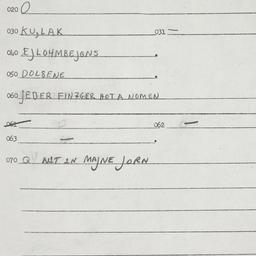 020 0
030 KULAK 031 —
040 EJLOHMBEJGNS .
050 DOLBENE .
060 JEDER FINZGER HOT A NOMEN
061 — 062 —
063 — .
070 Q NIT IN MAJNE JORN